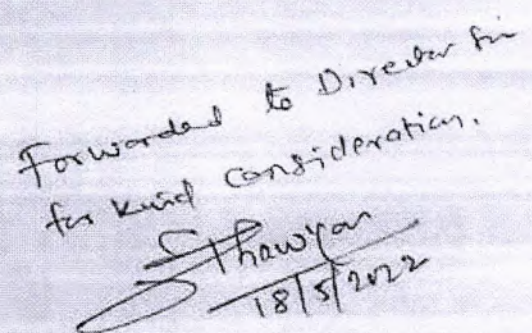 Forwarded to Director Sir
for kind consideration.
18/5/2022